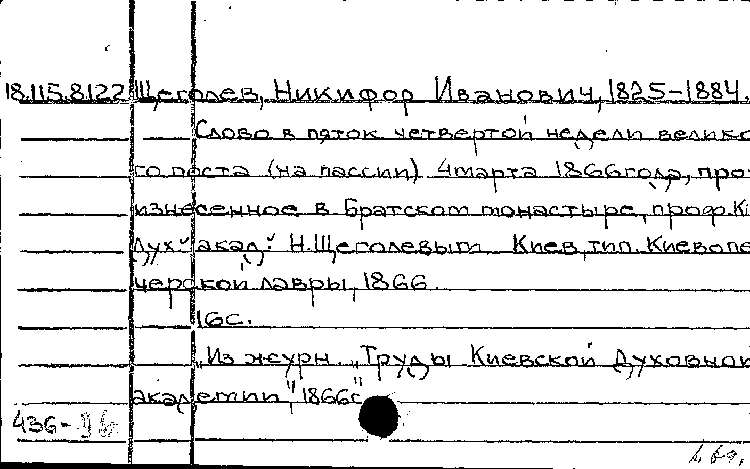 18.115.8122 Щеголев, Никифор Иванович, 1825-1884.
Слово в пяток четвертой недели велико
го поста (на пассии) 4 марта 1866 года, про-
изнесенное в Братском монастыре, проф. Ки
Дух. акад. Н. Щеголевым. Киев, тип. Киевопе
черской лавры, 1866.
16с.
„Из журн. „Труды Киевской Духовной
академии", 1866г."
436-96